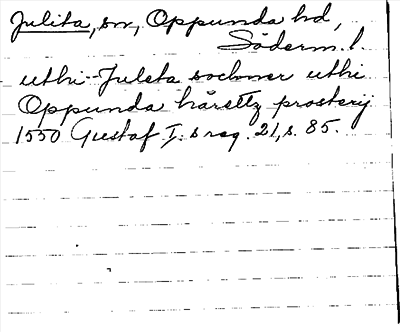 Julita, sn, Oppunda hd,
Söderm. l.
uthi Juleta sochner uthi
Oppunda häretz prosterij
1550 Gustaf I:s reg. 21, s. 85.